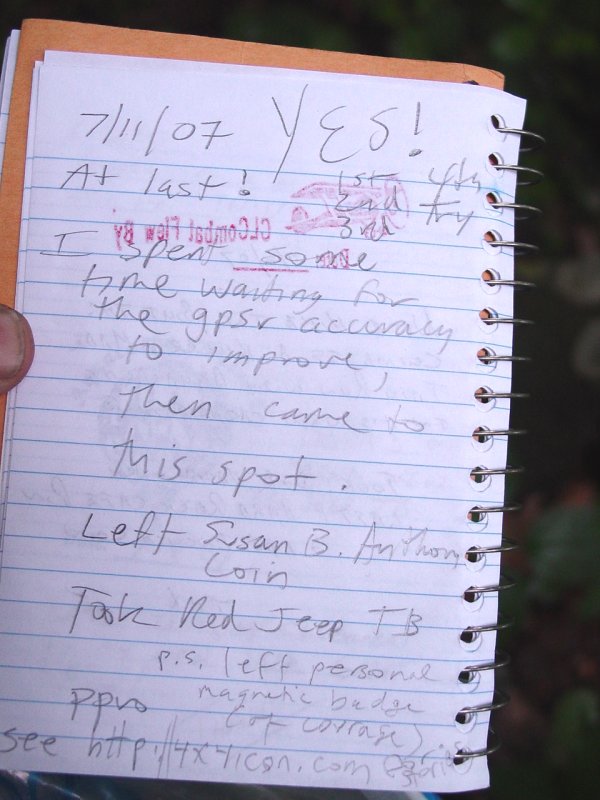 7/11/07 YES!
At last! 1st
2nd try
3rd
CLCombat Flew By
I spent some
time waiting for
the gpsr accuracy
to improve,
then came to
this spot.
Left Susan B. Anthony
Coin
Took Red Jeep TB
p.s. left personal
magnetic badge
ppro (of corrage)
see http://4x4icon.com